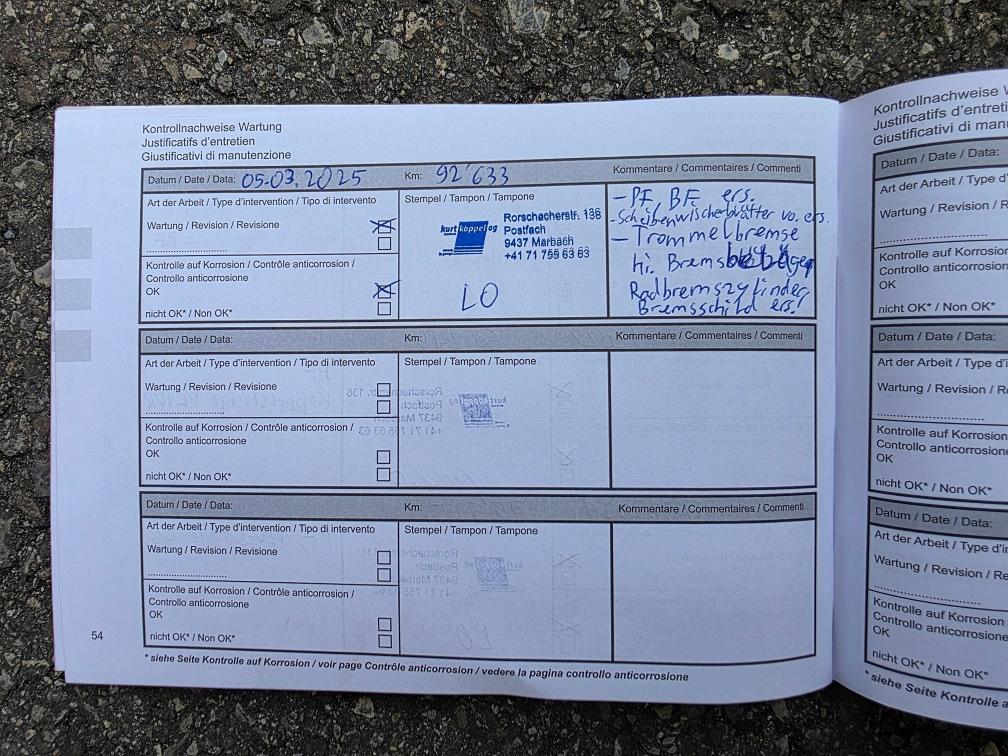 Kontrollnachweise Wartung
Justificatifs d'entretien
Giustificativi di manutenzione
Datum / Date / Data: 05.03.2025 Km: 92'633 Kommentare / Commentaires / Commenti
Art der Arbeit / Type d'intervention / Tipo di intervento
Wartung / Revision / Revisione
Kontrolle auf Korrosion / Contrôle anticorrosion /
Controllo anticorrosione
OK
nicht OK* / Non OK*
Stempel / Tampon / Tampone
kurt köppel ag
Rorschacherstr. 136
Postfach
9437 Marbach
+41 71 755 63 63
LO
- PF, BF ers.
- Scheibenwischerblätter vo. ers.
- Trommelbremse
hi. Bremsbeläge,
Radbremszylinder,
Bremsschild ers.
Datum / Date / Data: Km: Kommentare / Commentaires / Commenti
Art der Arbeit / Type d'intervention / Tipo di intervento
Wartung / Revision / Revisione
Kontrolle auf Korrosion / Contrôle anticorrosion /
Controllo anticorrosione
OK
nicht OK* / Non OK*
Stempel / Tampon / Tampone
Datum / Date / Data: Km: Kommentare / Commentaires / Commenti
Art der Arbeit / Type d'intervention / Tipo di intervento
Wartung / Revision / Revisione
Kontrolle auf Korrosion / Contrôle anticorrosion /
Controllo anticorrosione
OK
nicht OK* / Non OK*
Stempel / Tampon / Tampone
54
* siehe Seite Kontrolle auf Korrosion / voir page Contrôle anticorrosion / vedere la pagina controllo anticorrosione
Kontrollnachweise
Justificatifs d'entreti
Giustificativi di man
Datum / Date / Data:
Art der Arbeit / Type d'
Wartung / Revision / R
Kontrolle auf Korrosion
Controllo anticorrosion
OK
nicht OK* / Non OK*
Datum / Date / Data:
Art der Arbeit / Type d'i
Wartung / Revision / R
Kontrolle auf Korrosion
Controllo anticorrosion
OK
nicht OK* / Non OK*
Datum / Date / Data:
Art der Arbeit / Type d'i
Wartung / Revision / Re
Kontrolle auf Korrosion
Controllo anticorrosion
OK
nicht OK* / Non OK*
* siehe Seite Kontrolle a